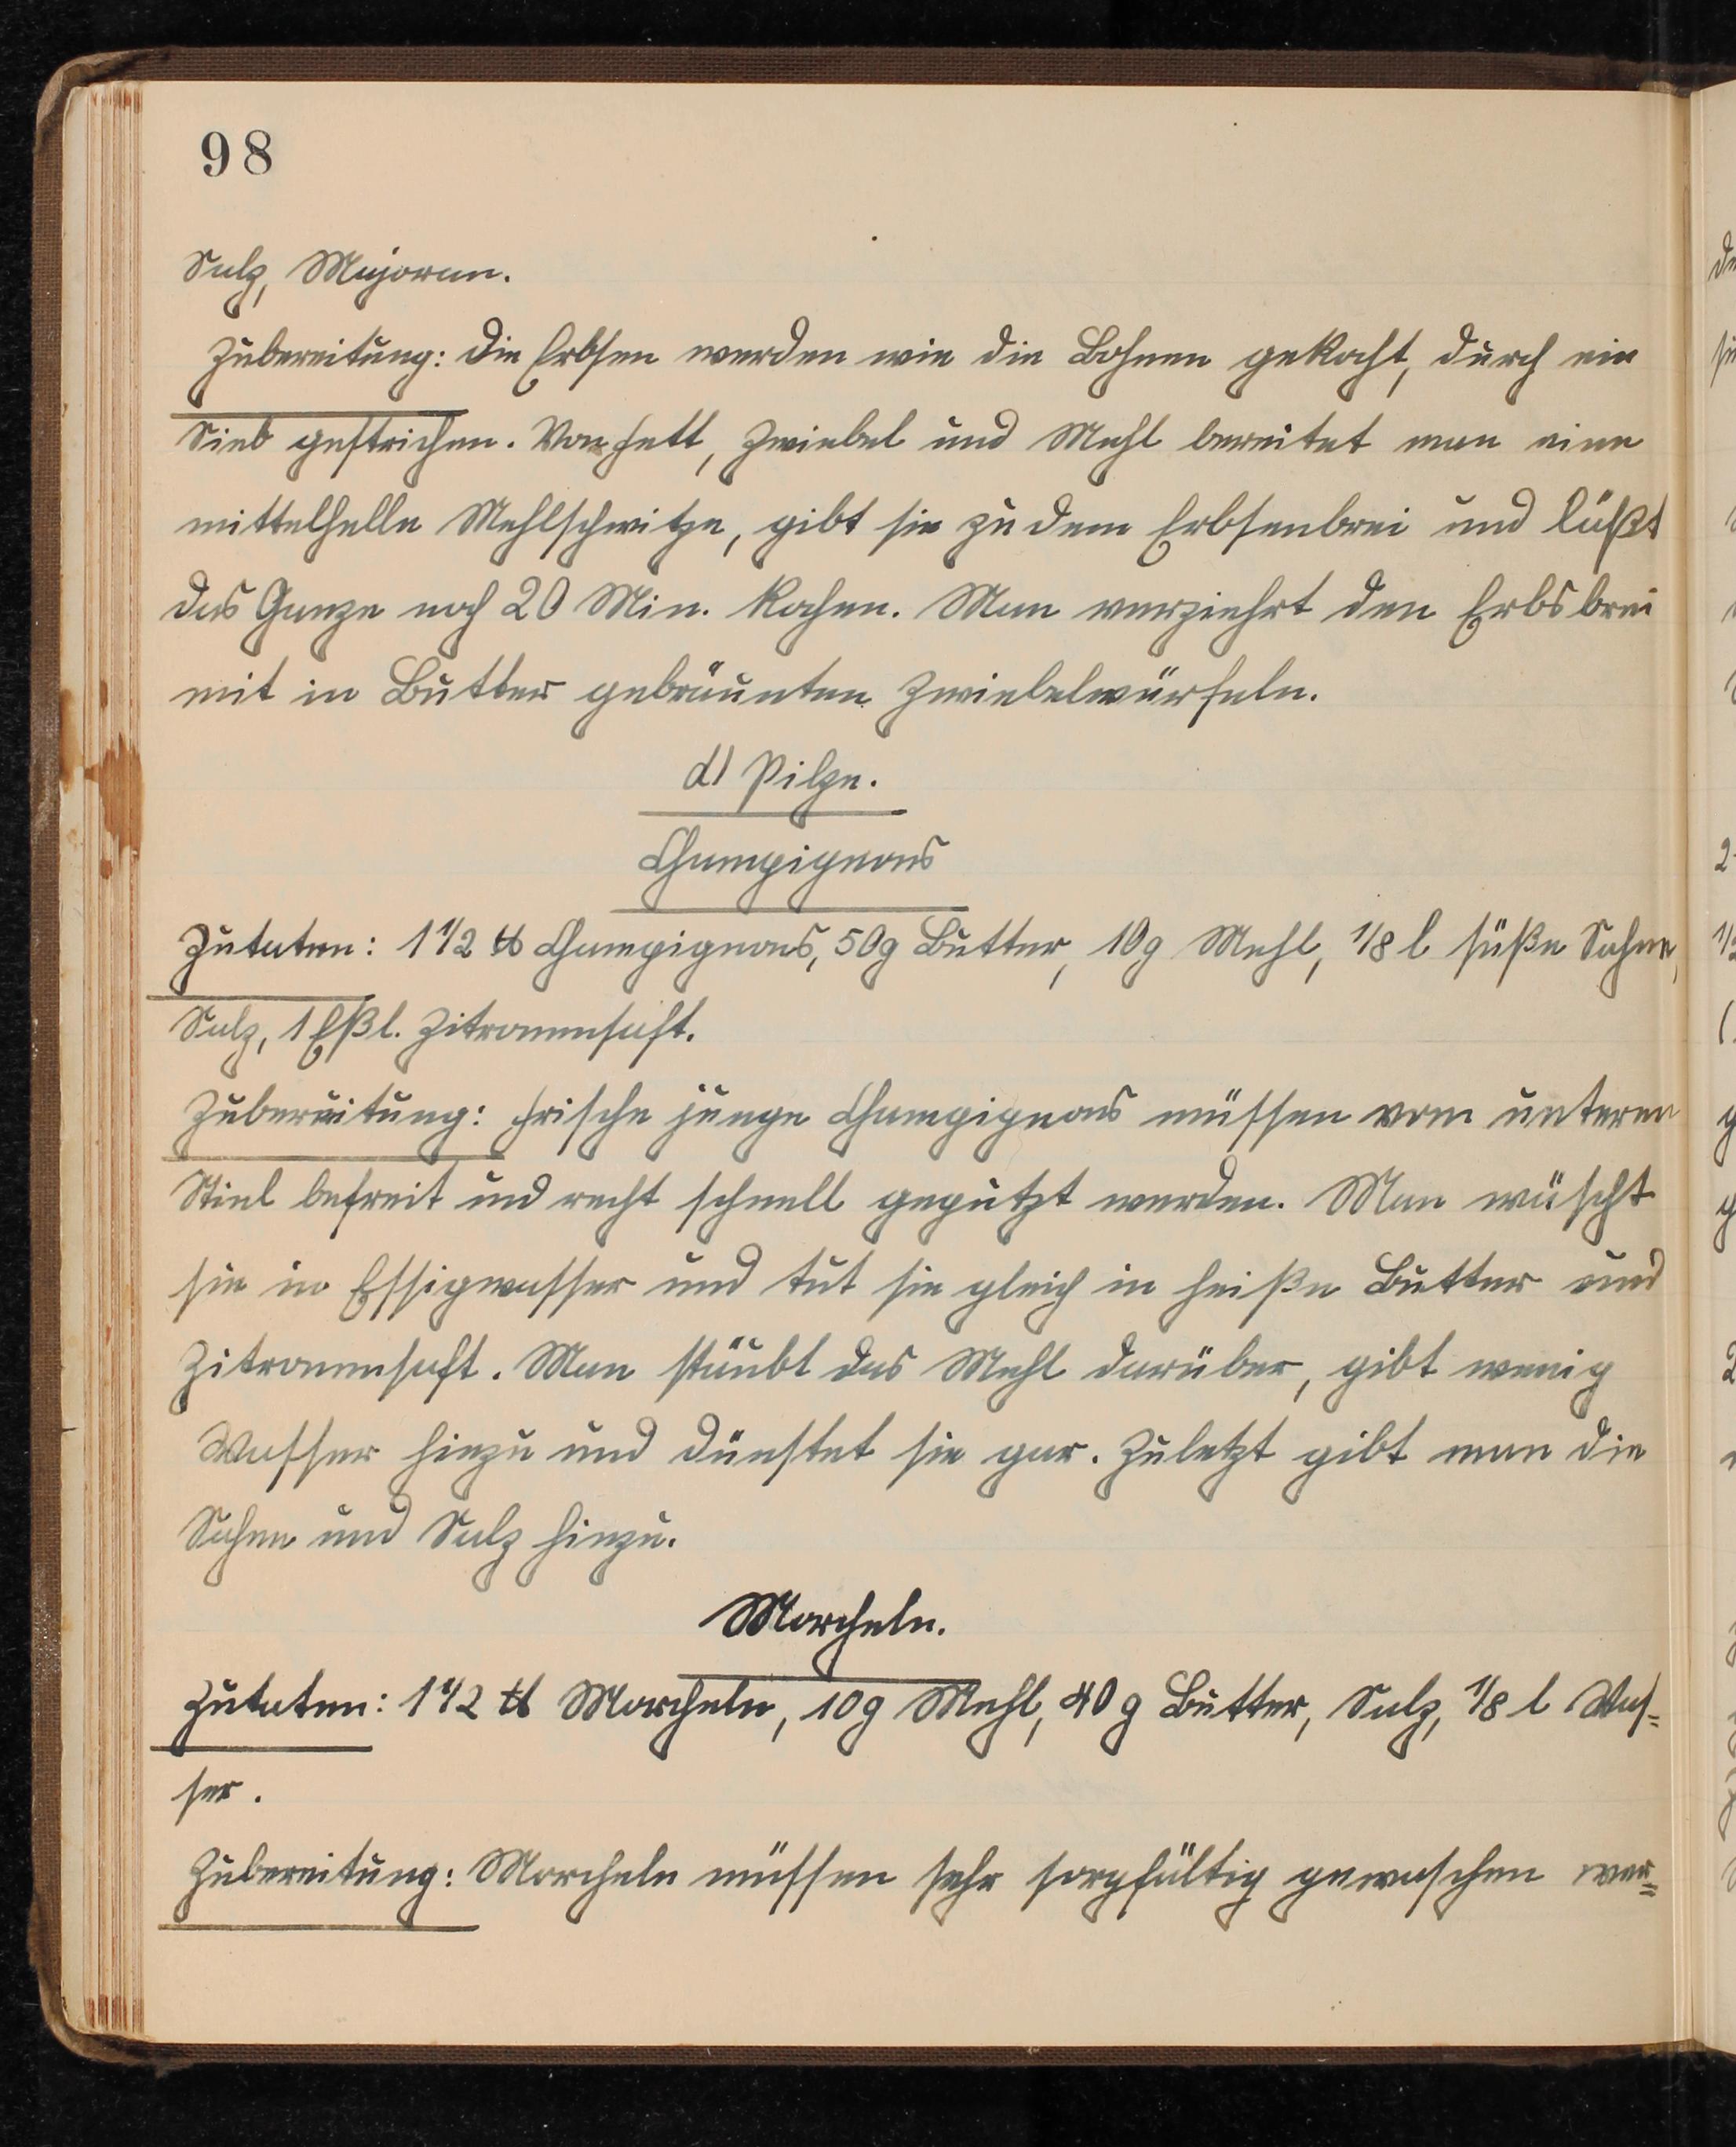 98
Salz, Majoran.
Zubereitung: Die Erbsen werden wie die Bohnen gekocht, durch ein
Sieb gestrichen. Von Fett, Zwiebel und Mehl bereitet man eine
mittelhelle Mehlschwitze, gibt sie zu dem Erbsenbrei und läßt
das Ganze noch 20 Min. kochen. Man verziehrt den Erbsbrei
mit in Butter gebräunten Zwiebelwürfeln.
d) Pilze.
Champignons
Zutaten: 1 1/2 ℔ Champignons, 50g Butter, 10g Mehl, 1/8 l süße Sahne,
Salz, 1 Eßl. Zitronensaft.
Zubereitung: Frische junge Champignons müssen vom unteren
Stiel befreit und recht schnell geputzt werden. Man wäscht
sie in Essigwasser und tut sie gleich in heiße Butter und
Zitronensaft. Man stäubt das Mehl darüber, gibt wenig
Wasser hinzu und dünstet sie gar. Zuletzt gibt man die
Sahne und Salz hinzu.
Morcheln.
Zutaten: 1 1/2 ℔ Morcheln, 10g Mehl, 40 g Butter, Salz, 1/8 l Was=
ser.
Zubereitung: Morcheln müssen sehr sorgfältig gewaschen wer=